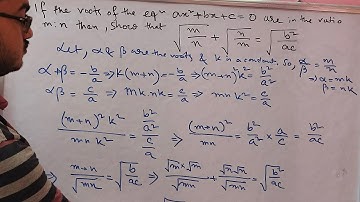 If the roots of the eqⁿ ax²+bx+c=0 are in the ratio
m:n then, show that √(m/n) + √(n/m) = √(b²/ac)
Let, α & β are the roots & k is a constant. So, α/β = m/n ⇒ α=mk β=nk
α+β = -b/a ⇒ k(m+n) = -b/a ⇒ (m+n)²k² = b²/a²
αβ = c/a ⇒ mk.nk = c/a ⇒ mnk² = c/a
(m+n)²k² / mnk² = (b²/a²) / (c/a) ⇒ (m+n)²/mn = b²/a² × a/c = b²/ac
⇒ (m+n)/√mn = √(b²/ac) ⇒ √m×√m/√mn + √n×√n/√mn = √(b²/ac)